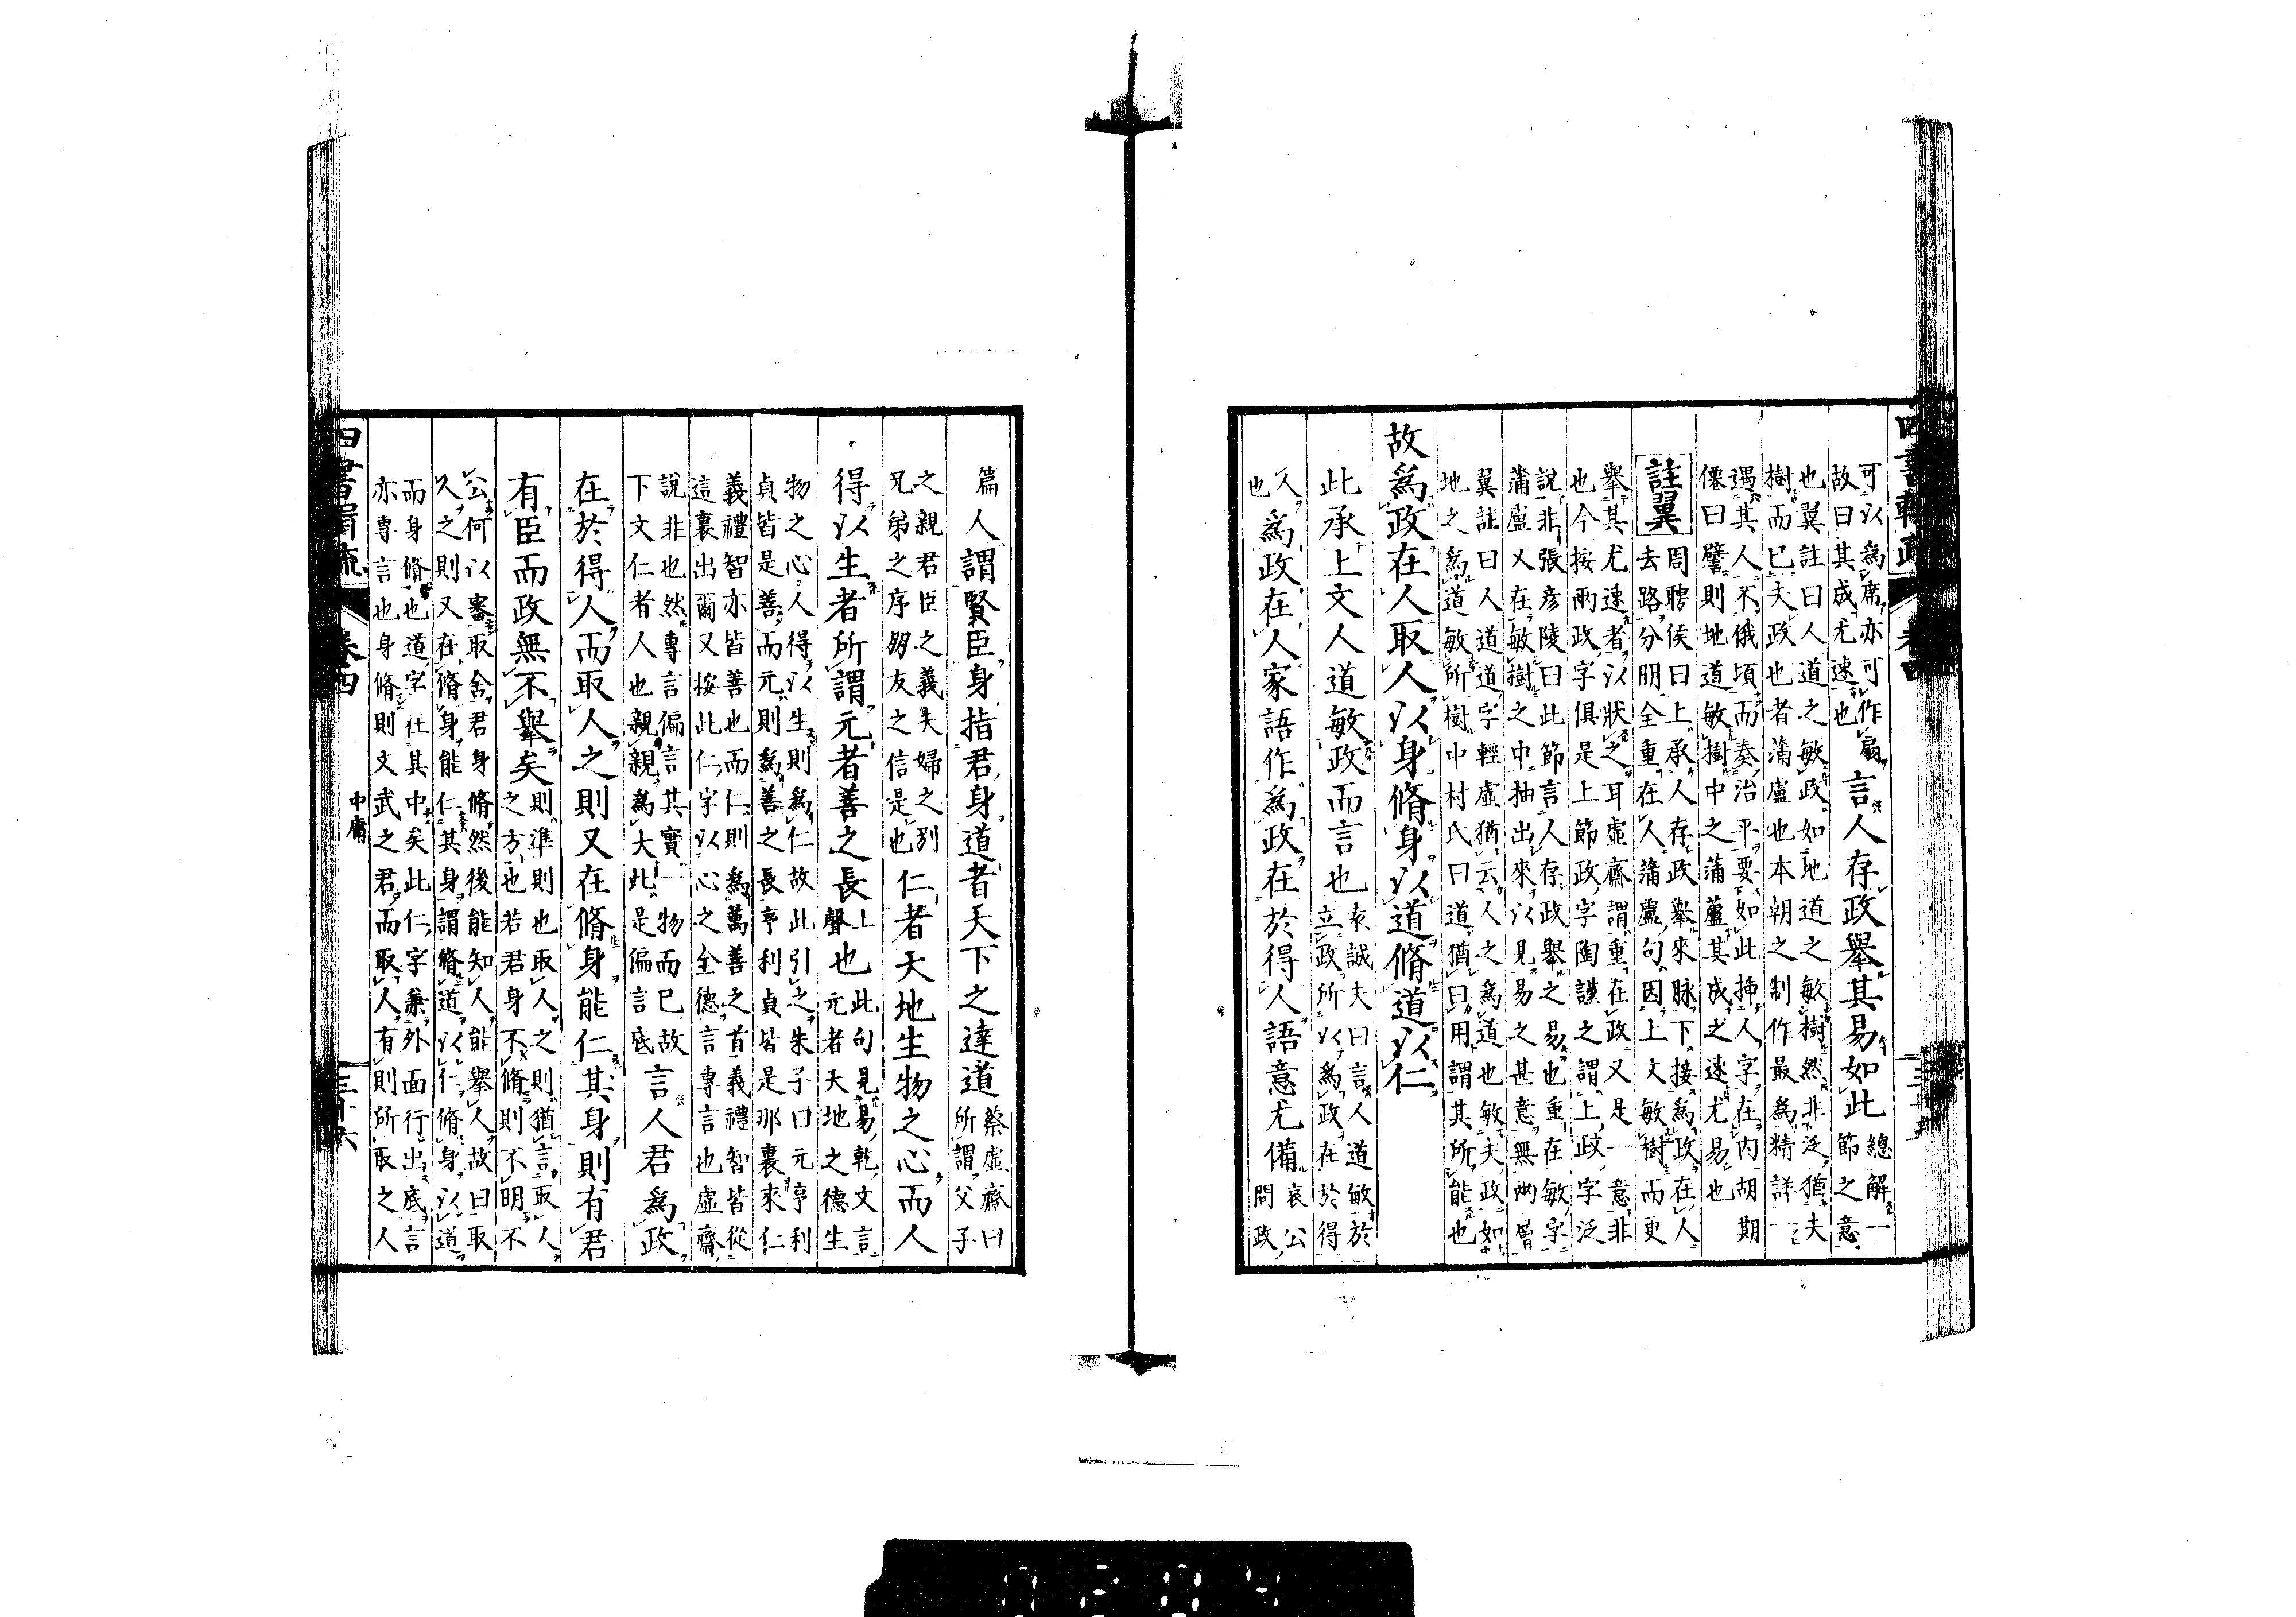 可以爲席亦可作扇
故曰其成尤速也
言人存政舉其易如此
總解一
節之意
也翼註曰人道之敏政如地道之敏樹然非泛猶夫
樹而已夫政也者蒲盧也本朝之制作最爲精詳
遇其人不俄頃而奏治平要如此揷人字在内胡期
僊曰譬則地道敏樹中之蒲蘆其成之速尤易也
註翼
周聘侯曰上承人存政舉來脉下接爲政在人
去路分明全重在人蒲盧句因上文敏樹而更
舉其尤速者以狀之耳虛齋謂重在政又是一意非
也今按兩政字俱是上節政字陶謹之謂上政字泛
說非張彦陵曰此節言人存政舉之易也重在敏字
蒲盧又在敏樹之中抽出來以見易之甚意無兩層
翼註曰人道道字輕虛猶云人之爲道也敏夫政如
地之爲道敏所樹中村氏曰道猶曰用謂其所能也
故爲政在人取人以身脩身以道脩道以仁
此承上文人道敏政而言也
袁誠夫曰言人道敏於
立政所以爲政在於得
人
也
爲政在人家語作爲政在於得人語意尤備
哀公
問政
篇人謂賢臣身指君身道者天下之達道
蔡虛齋曰
所謂父子
之親君臣之義夫婦之別
兄弟之序朋友之信是也
仁者天地生物之心而人
得以生者所謂元者善之長
上
聲
也
此句見易乾文言
元者天地之德生
物之心人得以生則爲仁故此引之朱子曰元亨利
貞皆是善而元則爲善之長亨利貞皆是那裏來仁
義禮智亦皆善也而仁則爲萬善之首義禮智皆從
這裏出爾又按此仁字以心之全德言專言也虛齋
說非也然專言偏言其實一物而已故
下文仁者人也親親爲大此是偏言底
言人君爲政
在於得人而取人之則又在脩身能仁其身則有君
有臣而政無不舉矣
則準則也取人之則猶言取人
之方也若君身不脩則不明不
公何以審取舍君身脩然後能知人能舉人故曰取
人之則又在脩身能仁其身謂脩道以仁脩身以道
而身脩也道字在其中矣此仁字兼外面行出底言
亦專言也身脩則文武之君而取人有則所取之人
中庸